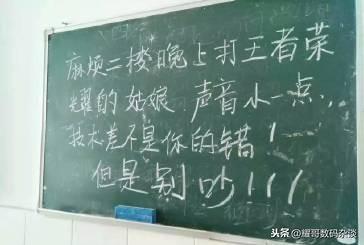 麻烦二楼晚上打王者荣
耀的姑娘 声音小一点、
技术差不是你的错！
但是别吵！！！
头条@耀哥数码杂谈